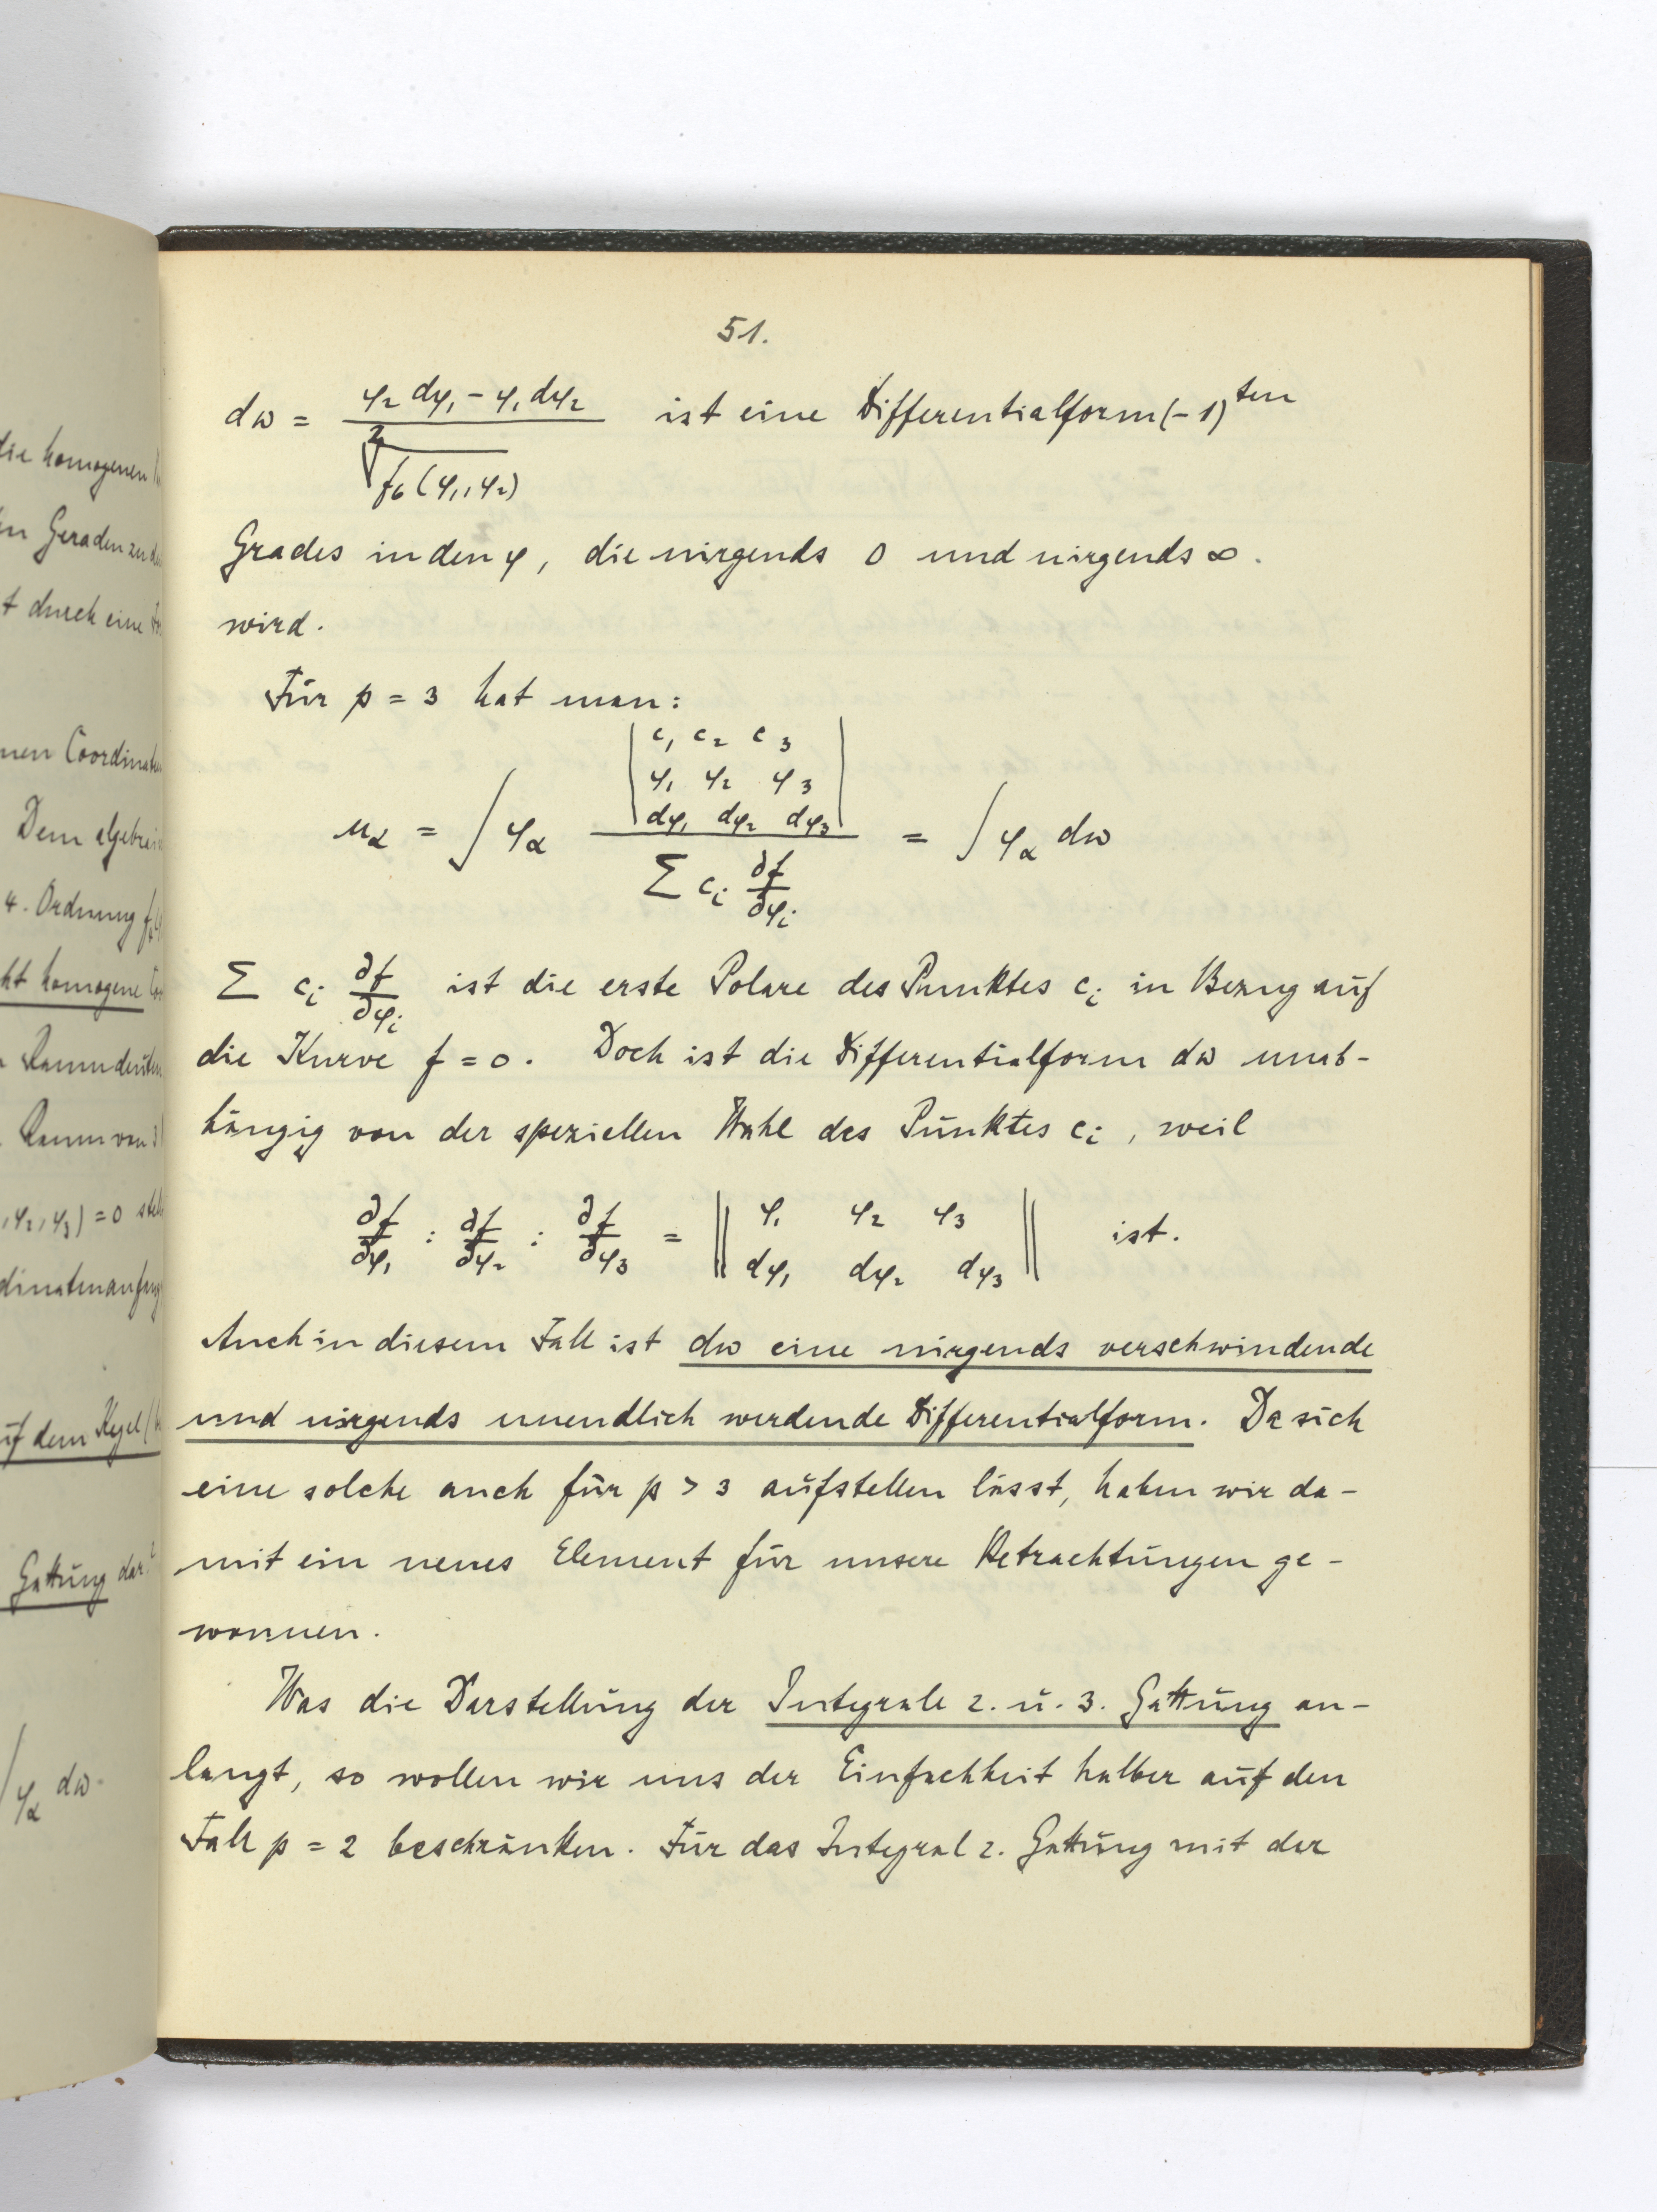 51.
dω = (φ₂ dφ₁ − φ₁ dφ₂) / ²√f₆(φ₁, φ₂) ist eine Differentialform (−1)ten
Grades in den φ, die nirgends 0 und nirgends ∞.
wird.
Für p = 3 hat man:
u_α = ∫ φ_α |c₁ c₂ c₃; φ₁ φ₂ φ₃; dφ₁ dφ₂ dφ₃| / Σ c_i ∂f/∂φ_i = ∫ φ_α dω
Σ c_i ∂f/∂φ_i ist die erste Polare des Punktes c_i in Bezug auf
die Kurve f = 0. Doch ist die Differentialform dω unab-
hängig von der speziellen Wahl des Punktes c_i, weil
∂f/∂φ₁ : ∂f/∂φ₂ : ∂f/∂φ₃ = ‖φ₁ φ₂ φ₃; dφ₁ dφ₂ dφ₃‖ ist.
Auch in diesem Fall ist dω eine nirgends verschwindende
und nirgends unendlich werdende Differentialform. Da sich
eine solche auch für p > 3 aufstellen lässt, haben wir da-
mit ein neues Element für unsere Betrachtungen ge-
wonnen.
Was die Darstellung der Integrale 2. u. 3. Gattung an-
langt, so wollen wir uns der Einfachheit halber auf den
Fall p = 2 beschränken. Für das Integral 2. Gattung mit der
die homogenen
Geraden zu
t durch eine
nen
Dem
4. Ordnung
homogene
Raum
Raum von
, φ₂, φ₃) = 0
uf dem Kegel
Gattung
∫ φ_α dω.